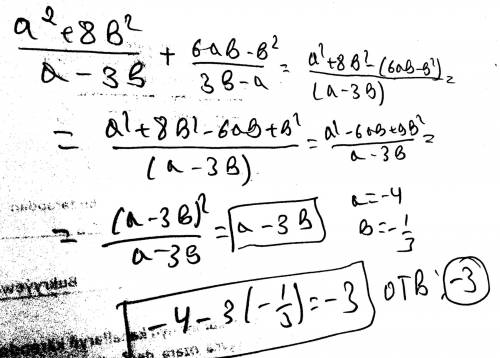 (a² + 8b²)/(a - 3b) + (6ab - b²)/(3b - a) = (a² + 8b² - (6ab - b²))/(a - 3b) =
= (a² + 8b² - 6ab + b²)/(a - 3b) = (a² - 6ab + 9b²)/(a - 3b) =
= (a - 3b)²/(a - 3b) = a - 3b a = -4
b = -1/3
-4 - 3(-1/3) = -3 ОТВ: -3